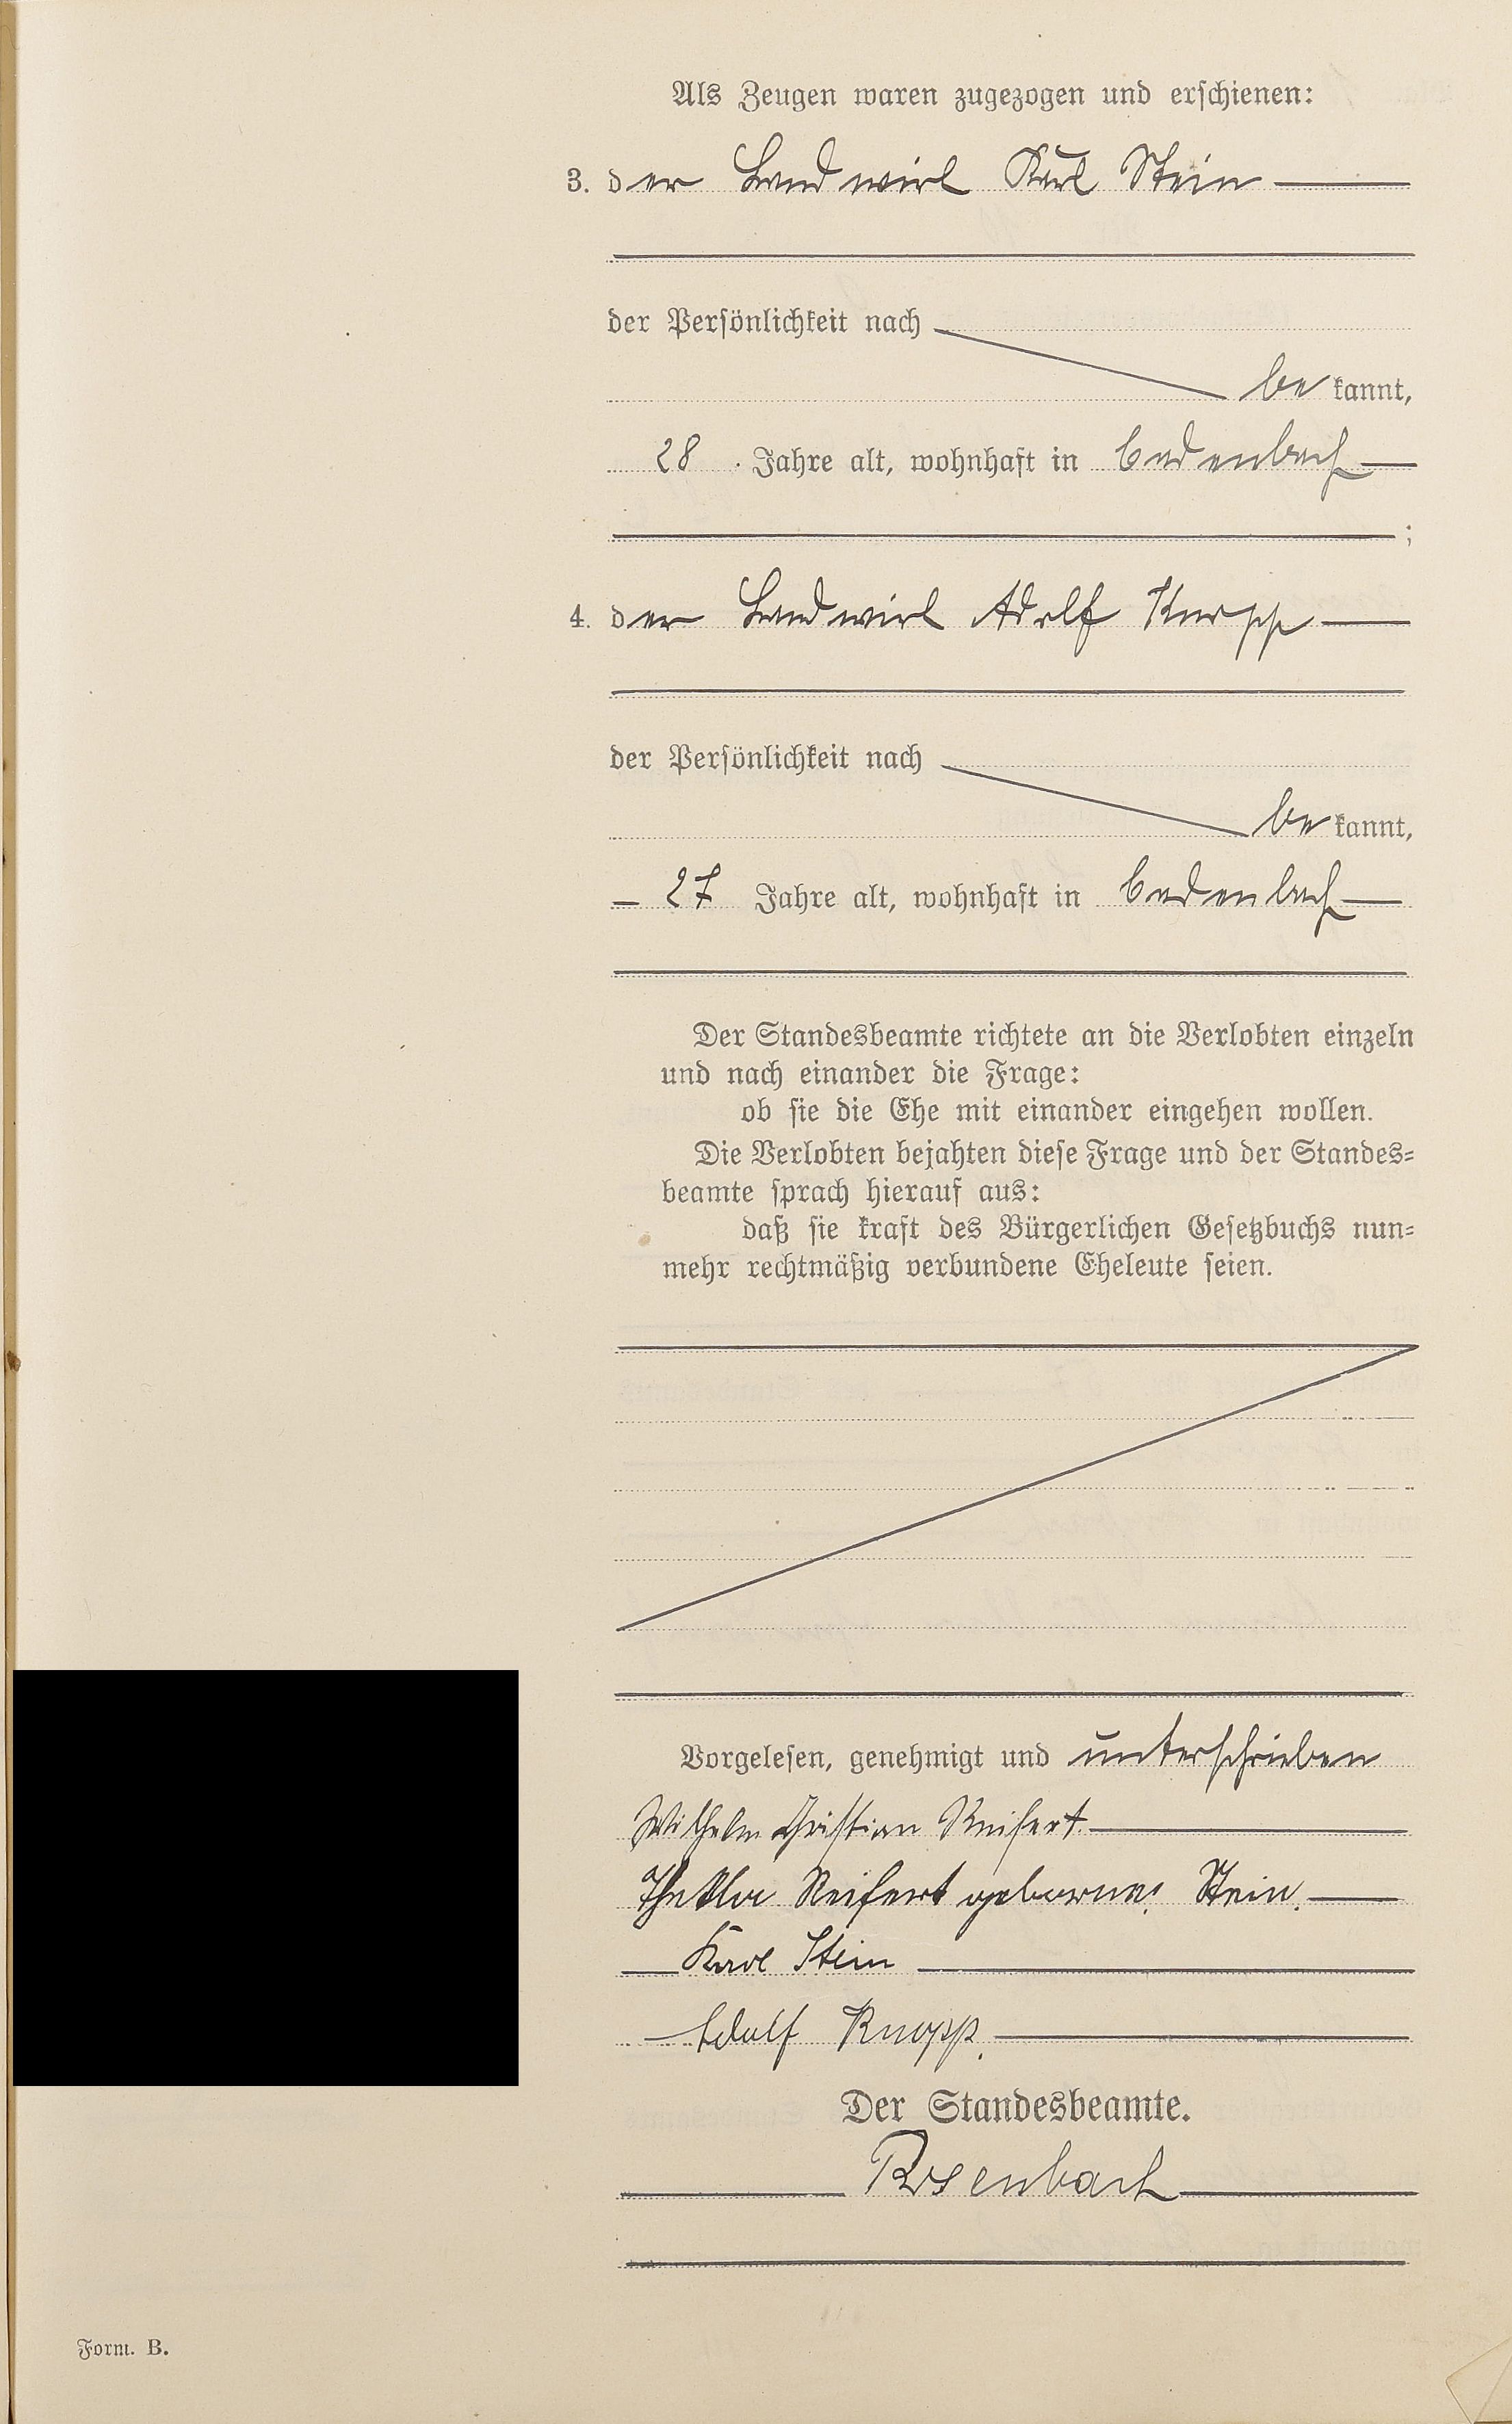 Als Zeugen waren zugezogen und erschienen:
3. der Landwirt Karl Stein
der Persönlichkeit nach
bekannt,
28 Jahre alt, wohnhaft in
;
4. der Landwirt Adolf Knopp
der Persönlichkeit nach
bekannt,
27 Jahre alt, wohnhaft in
Der Standesbeamte richtete an die Verlobten einzeln
und nach einander die Frage:
ob sie die Ehe mit einander eingehen wollen.
Die Verlobten bejahten diese Frage und der Standes=
beamte sprach hierauf aus:
daß sie kraft des Bürgerlichen Gesetzbuchs nun=
mehr rechtmäßig verbundene Eheleute seien.
Vorgelesen, genehmigt und unterschrieben
Wilhelm Christian Reifert.
Thekla Reifert geborne Stein.
Karl Stein
Adolf Knopp.
Der Standesbeamte.
Rosenbach
Form. B.